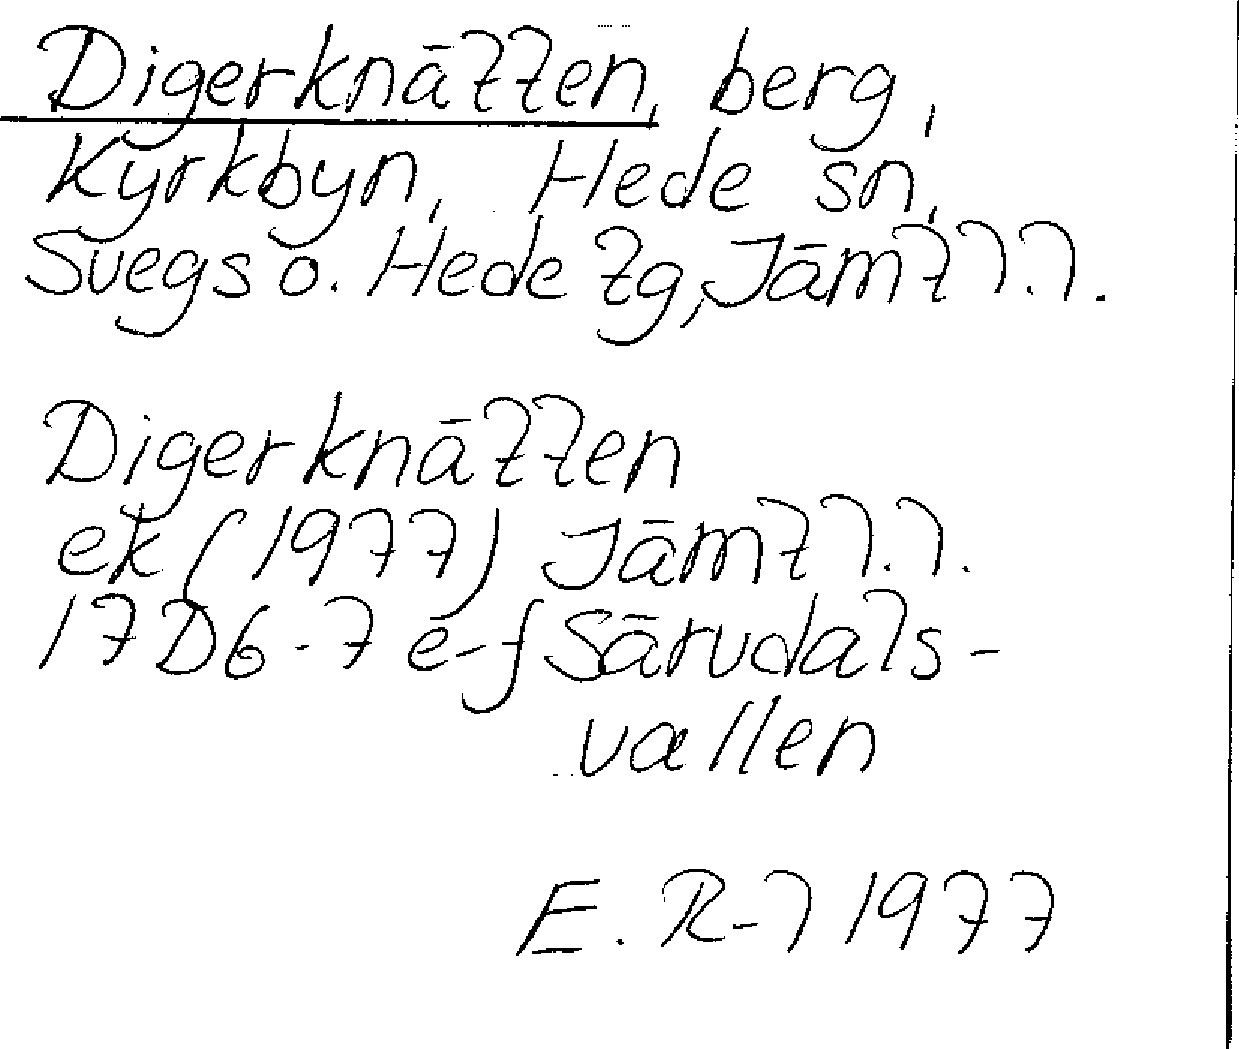 Digerknätten, berg,
Kyrkbyn, Hede sn,
Svegs o. Hede tg, Jämtl.l.
Digerknätten
ek (1977) Jämtl.l.
17D6-7 e-f Särvdals-
vallen
E. R-l 1977